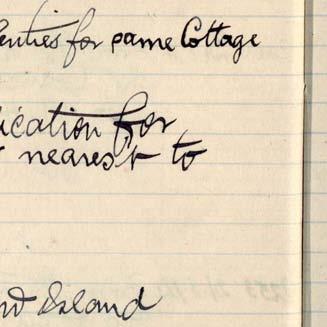 for same Cottage
ication for
nearest to
Island